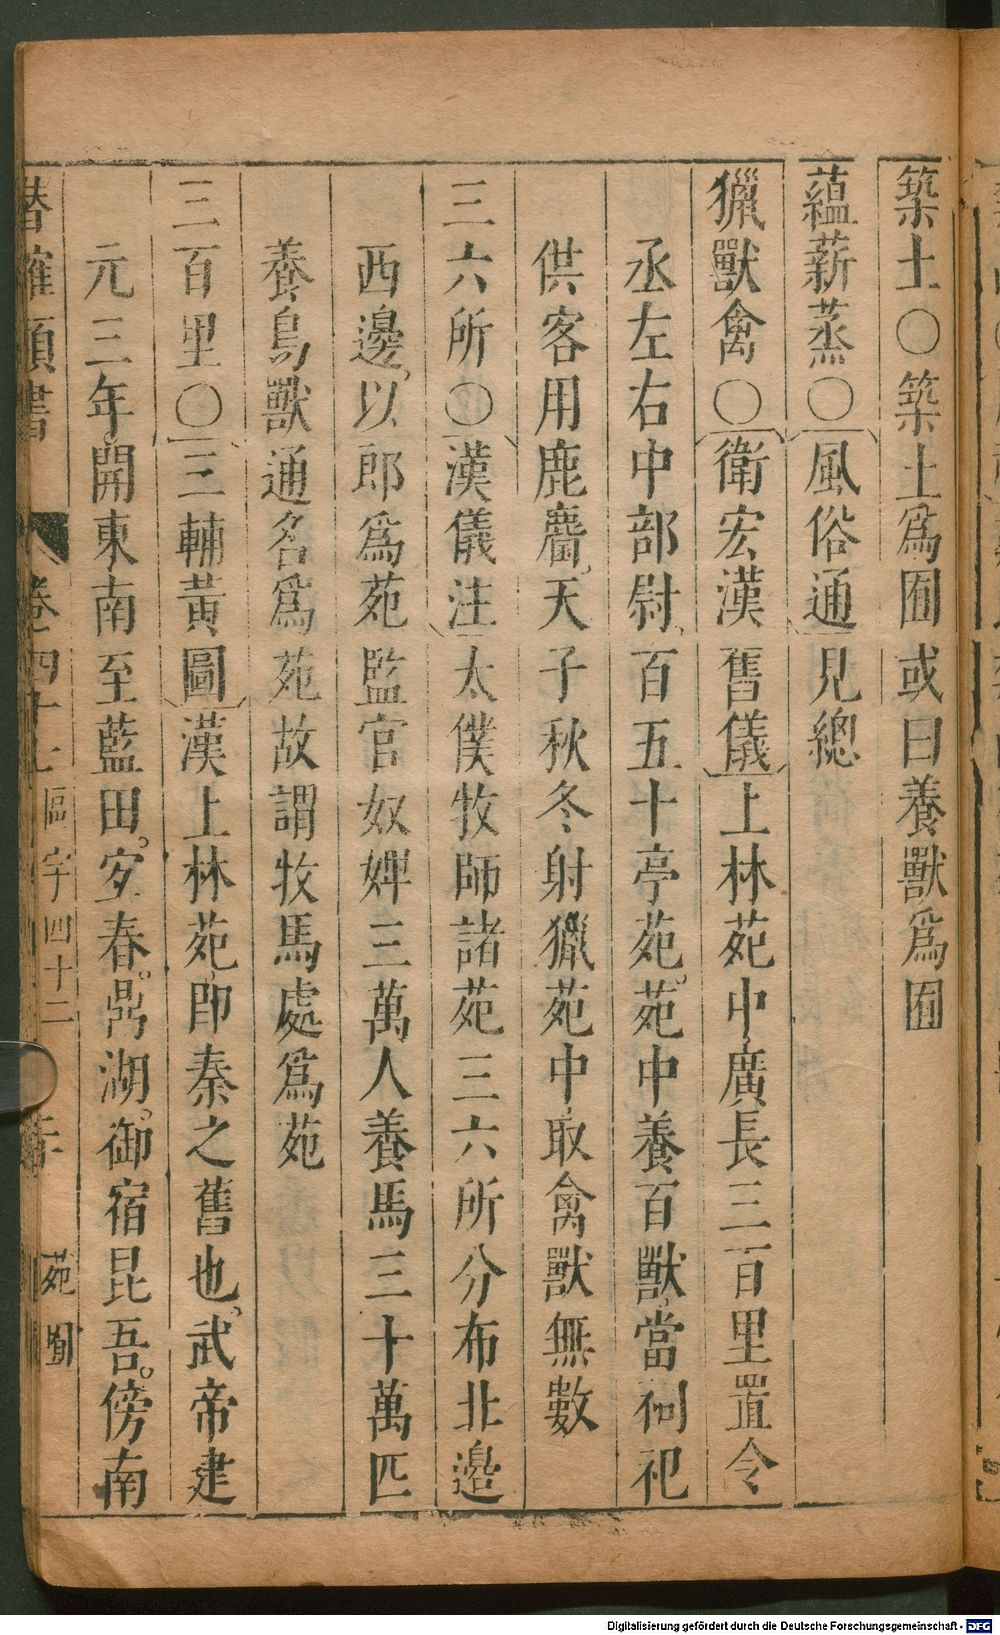 築土○築土爲囿或曰養獸爲囿
蘊薪蒸○風俗通見總
獵獸禽○衛宏漢舊儀上林苑中廣長三百里置令
丞左右中部尉百五十亭苑。苑中養百獸,當祠祀
供客用鹿麕。天子秋冬射獵苑中取禽獸無數
三六所○漢儀注太僕牧師諸苑三六所分布北邉
西邊,以郎爲苑監官奴婢三萬人養馬三十萬匹
養鳥獸通名爲苑故謂牧馬處爲苑
三百里○三輔黃圖漢上林苑,卽秦之舊也,武帝建
元三年開東南至藍田。宜春。鼎湖。御宿昆吾。傍南
卷四十七 區宇四十二
苑囿
Digitalisierung gefördert durch die Deutsche Forschungsgemeinschaft - DFG